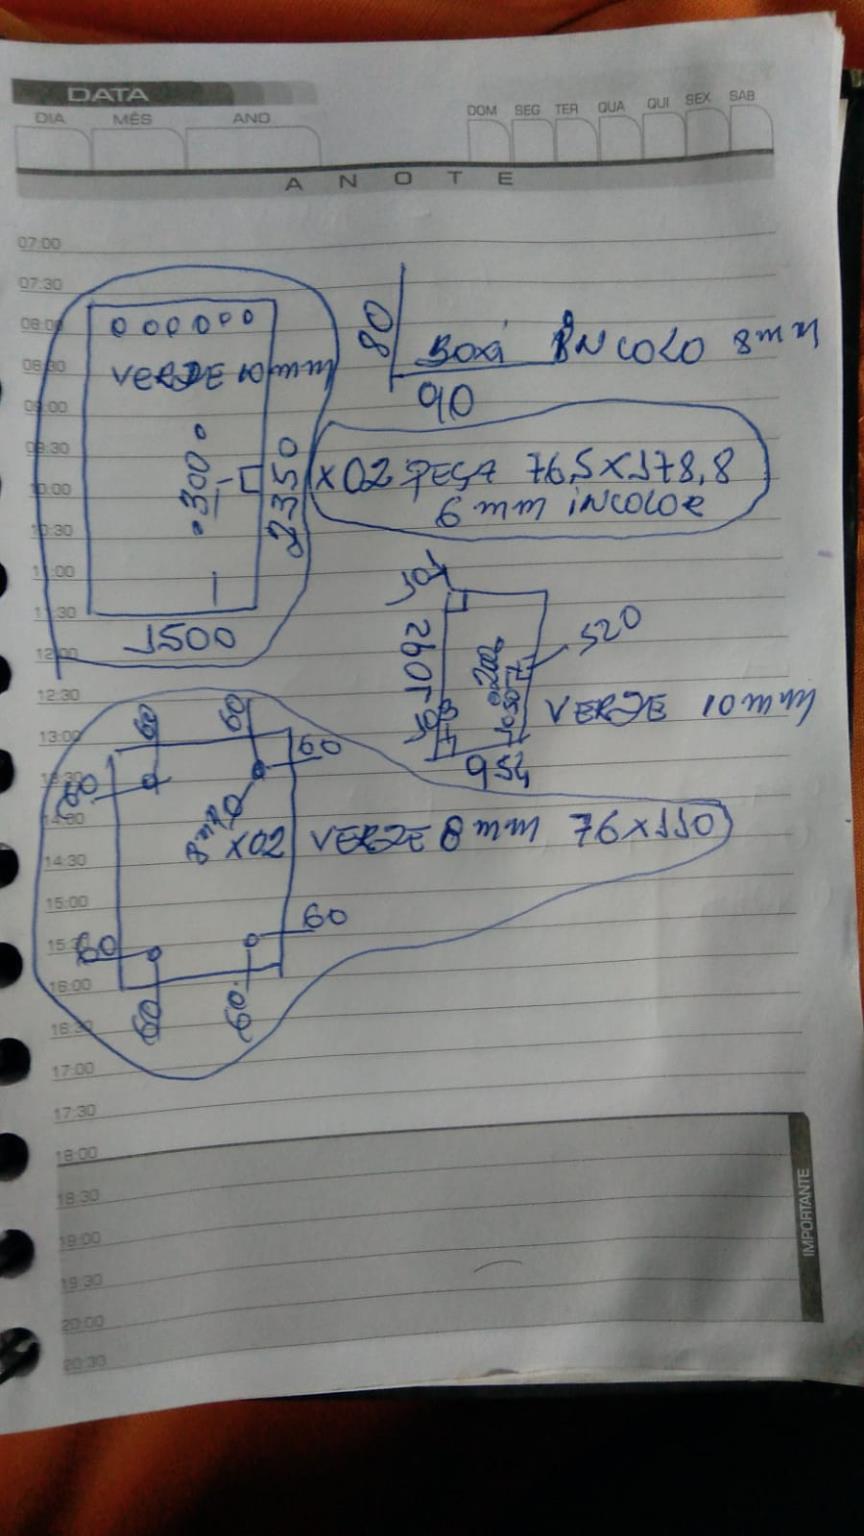 DATA
DIA MÊS ANO
DOM SEG TER QUA QUI SEX SAB
A N O T E
07:00
07:30
08:00
08:30
09:00
09:30
10:00
10:30
11:00
11:30
12:00
12:30
13:00
13:30
14:00
14:30
15:00
15:30
16:00
16:30
17:00
17:30
18:00
18:30
19:00
19:30
20:00
20:30
IMPORTANTE
VERDE 10 mm
300
2350
1500
80
BOXI INCOLO 8 mm
90
X02 PEÇA 76,5X178,8
6 mm INCOLOR
520
VERDE 10 mm
954
60
60
60
60
X02 VERDE 8 mm 76X110
60
60
60
60